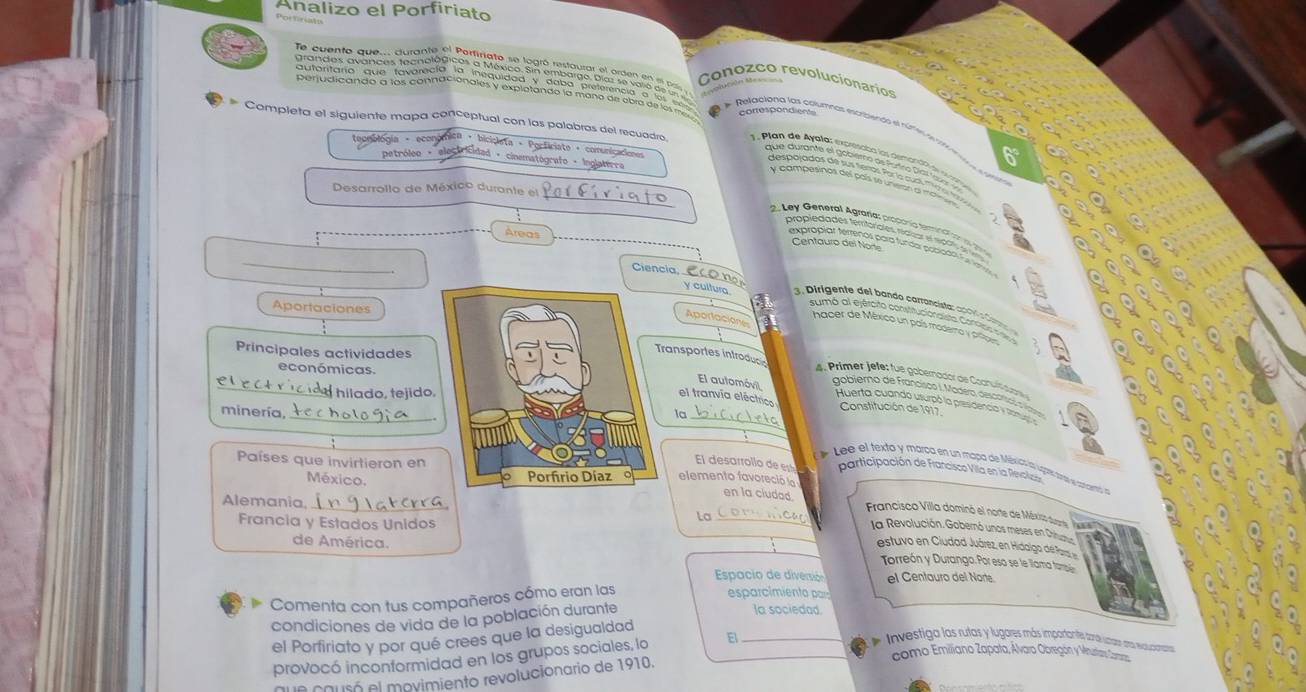 Analizo el Porfiriato
Porfiriato
Te cuento que... durante el Porfiriato se logró restaurar el orden en el país y
grandes avances tecnológicos a México. Sin embargo, Díaz se valió de un
autoritario que favorecía la inequidad y daba preferencia a los
perjudicando a los connacionales y explotando la mano de obra de los
Completa el siguiente mapa conceptual con las palabras del recuadro.
tecnología • económica • bicicleta • Porfiriato • comunicaciones
petróleo • electricidad • cinematógrafo • Inglaterra
Desarrollo de México durante el Porfiriato
Áreas
Ciencia, econo
y cultura.
Aportaciones
Aportaciones
Principales actividades
económicas.
electricidad hilado, tejido,
minería, techologia.
Transportes introducid
El automóvil,
el tranvía eléctrico y
la bicicleta
Países que invirtieron en
México.
Alemania, Inglaterra,
Francia y Estados Unidos
de América.
Porfirio Díaz
El desarrollo de este
elemento favoreció la
en la ciudad.
La
Espacio de diversión
esparcimiento para
la sociedad.
El
Comenta con tus compañeros cómo eran las
condiciones de vida de la población durante
el Porfiriato y por qué crees que la desigualdad
provocó inconformidad en los grupos sociales, lo
que causó el movimiento revolucionario de 1910.
Conozco revolucionarios
Relaciona las columnas escribiendo el número de
correspondiente.
6°
1. Plan de Ayala: expresaba las demandas de
que durante el gobierno de Porfirio Díaz
despojados de sus tierras. Por lo cual, muchos
y campesinos del país se unieron al movimiento
2. Ley General Agraria: proponía terminar con
propiedades territoriales, realizar el reparto de
expropiar terrenos para fundar poblados.
Centauro del Norte.
2
4
3. Dirigente del bando carrancista: apoyó a
sumó al ejército constitucionalista.
hacer de México un país moderno y próspero.
3
4. Primer jefe: fue gobernador de Coahuila durante
gobierno de Francisco I. Madero, desconoció
Huerta cuando usurpó la presidencia y promulgó la
Constitución de 1917.
1
Lee el texto y marca en un mapa de México los lugares donde se concentró la
participación de Francisco Villa en la Revolución.
Francisco Villa dominó el norte de México durante
la Revolución. Gobernó unos meses en Chihuahua,
estuvo en Ciudad Juárez, en Hidalgo del Parral, en
Torreón y Durango. Por eso se le llama también
el Centauro del Norte.
Investiga las rutas y lugares más importantes donde
como Emiliano Zapata, Álvaro Obregón y Venustiano Carranza.